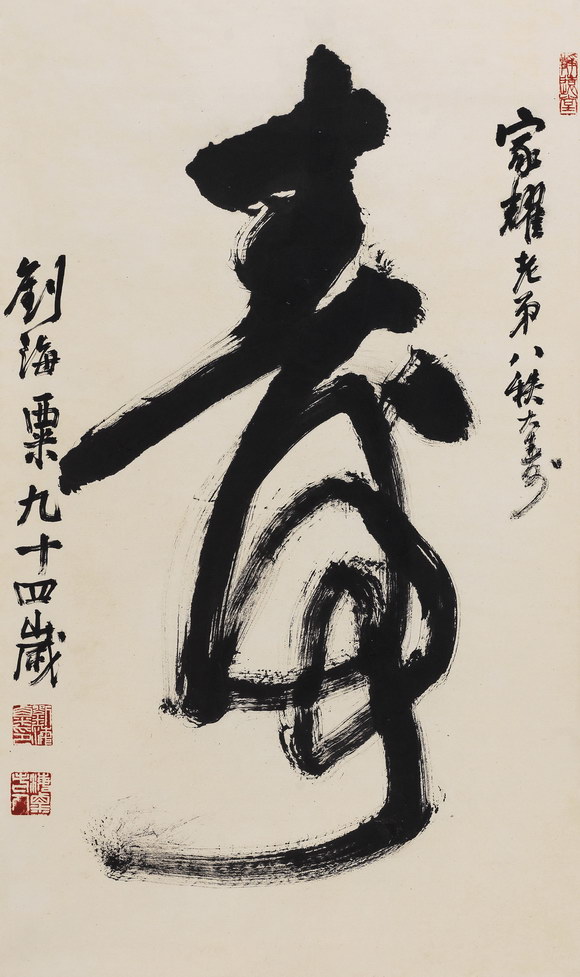 家耀老弟八秩大寿
壽
劉海粟九十四歲